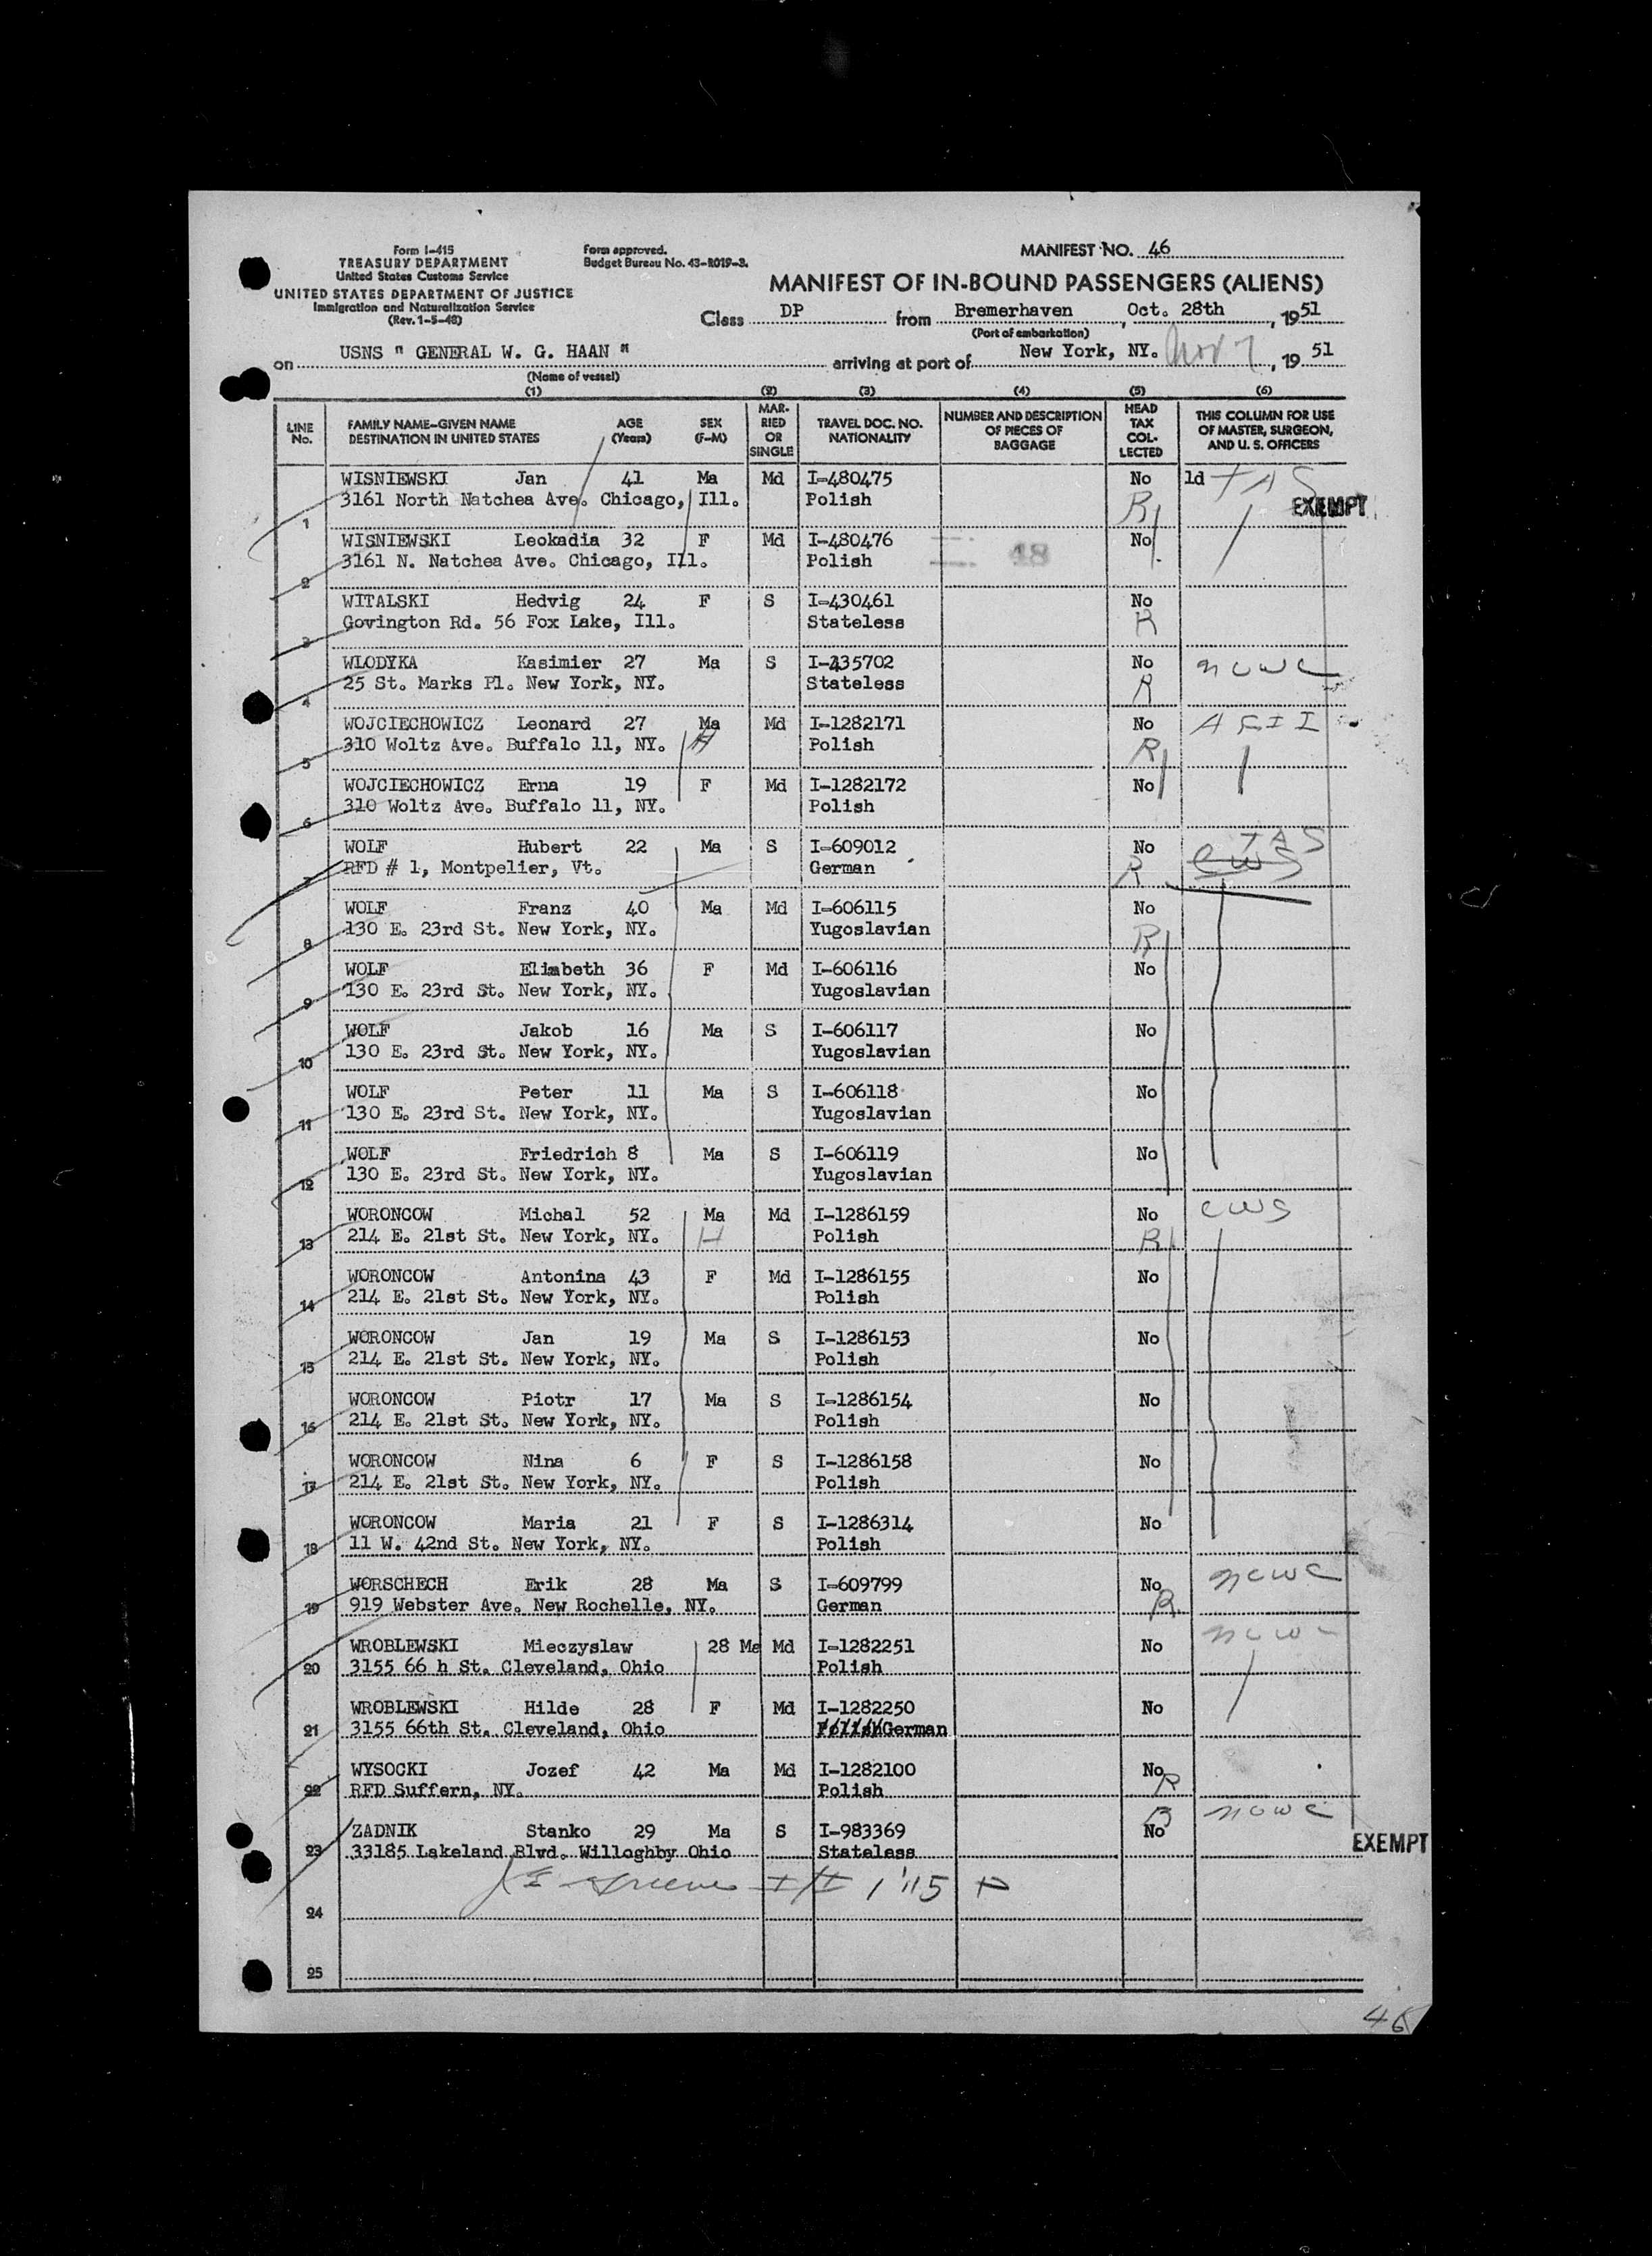 Form I-415
TREASURY DEPARTMENT
United States Customs Service
UNITED STATES DEPARTMENT OF JUSTICE
Immigration and Naturalization Service
(Rev. 1-5-48)
Form approved.
Budget Bureau No. 43-R019-3.
MANIFEST NO. 46
MANIFEST OF IN-BOUND PASSENGERS (ALIENS)
Class DP from Bremerhaven, Oct. 28th, 1951
(Port of embarkation)
on USNS " GENERAL W. G. HAAN " arriving at port of New York, NY. Nov 7, 1951
(Name of vessel)
(1) (2) (3) (4) (5) (6)
LINE No. FAMILY NAME-GIVEN NAME DESTINATION IN UNITED STATES AGE (Years) SEX (F-M) MARRIED OR SINGLE TRAVEL DOC. NO. NATIONALITY NUMBER AND DESCRIPTION OF PIECES OF BAGGAGE HEAD TAX COLLECTED THIS COLUMN FOR USE OF MASTER, SURGEON, AND U. S. OFFICERS
WISNIEWSKI Jan 41 Ma Md I-480475 No 1d TAS
1 3161 North Natchea Ave. Chicago, Ill. Polish R EXEMPT
WISNIEWSKI Leokadia 32 F Md I-480476 No
2 3161 N. Natchea Ave. Chicago, Ill. Polish 48
WITALSKI Hedvig 24 F S I-430461 No
3 Govington Rd. 56 Fox Lake, Ill. Stateless R
WLODYKA Kasimier 27 Ma S I-435702 No NCWC
4 25 St. Marks Pl. New York, NY. Stateless R
WOJCIECHOWICZ Leonard 27 Ma Md I-1282171 No
5 310 Woltz Ave. Buffalo 11, NY. H Polish R
WOJCIECHOWICZ Erna 19 F Md I-1282172 No
6 310 Woltz Ave. Buffalo 11, NY. Polish
WOLF Hubert 22 Ma S I-609012 No TAS
7 RFD # 1, Montpelier, Vt. German R CWS
WOLF Franz 40 Ma Md I-606115 No
8 130 E. 23rd St. New York, NY. Yugoslavian R
WOLF Elisabeth 36 F Md I-606116 No
9 130 E. 23rd St. New York, NY. Yugoslavian
WOLF Jakob 16 Ma S I-606117 No
10 130 E. 23rd St. New York, NY. Yugoslavian
WOLF Peter 11 Ma S I-606118 No
11 130 E. 23rd St. New York, NY. Yugoslavian
WOLF Friedrich 8 Ma S I-606119 No
12 130 E. 23rd St. New York, NY. Yugoslavian
WORONCOW Michal 52 Ma Md I-1286159 No CWS
13 214 E. 21st St. New York, NY. H Polish R
WORONCOW Antonina 43 F Md I-1286155 No
14 214 E. 21st St. New York, NY. Polish
WORONCOW Jan 19 Ma S I-1286153 No
15 214 E. 21st St. New York, NY. Polish
WORONCOW Piotr 17 Ma S I-1286154 No
16 214 E. 21st St. New York, NY. Polish
WORONCOW Nina 6 F S I-1286158 No
17 214 E. 21st St. New York, NY. Polish
WORONCOW Maria 21 F S I-1286314 No
18 11 W. 42nd St. New York, NY. Polish
WORSCHECH Erik 28 Ma S I-609799 No NCWC
19 919 Webster Ave. New Rochelle, NY. German R
WROBLEWSKI Mieczyslaw 28 Ma Md I-1282251 No NCWC
20 3155 66 h St. Cleveland, Ohio Polish
WROBLEWSKI Hilde 28 F Md I-1282250 No
21 3155 66th St. Cleveland, Ohio Polish German
WYSOCKI Jozef 42 Ma Md I-1282100 No
22 RFD Suffern, NY. Polish R
ZADNIK Stanko 29 Ma S I-983369 R No NCWC
23 33185 Lakeland Blvd. Willoghby Ohio Stateless EXEMPT
24
25
46